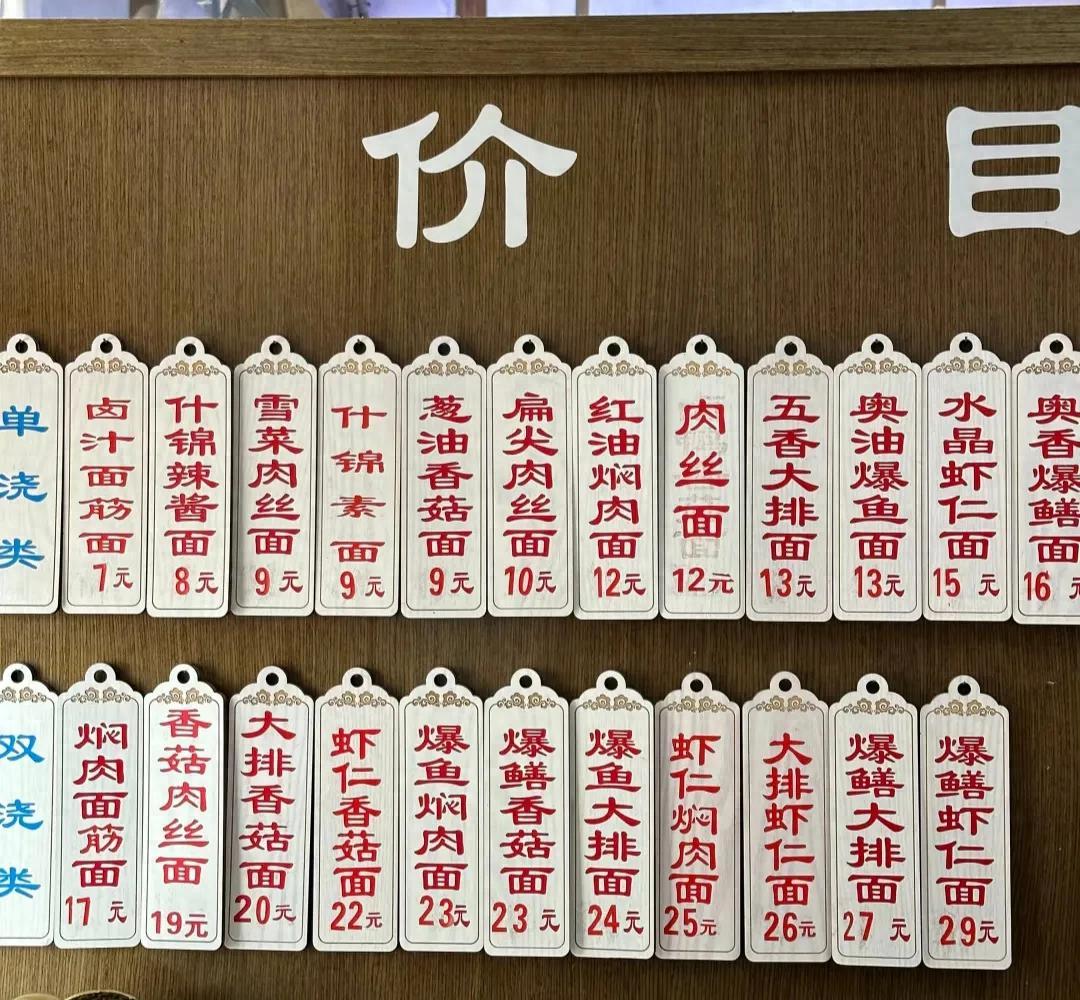 价目
单浇类
卤汁面筋面
7元
什锦辣酱面
8元
雪菜肉丝面
9元
什锦素面
9元
葱油香菇面
9元
扁尖肉丝面
10元
红油焖肉面
12元
肉丝面
12元
五香大排面
13元
奥油爆鱼面
13元
水晶虾仁面
15元
奥香爆鳝面
16元
双浇类
焖肉面筋面
17元
香菇肉丝面
19元
大排香菇面
20元
虾仁香菇面
22元
爆鱼焖肉面
23元
爆鳝香菇面
23元
爆鱼大排面
24元
虾仁焖肉面
25元
大排虾仁面
26元
爆鳝大排面
27元
爆鳝虾仁面
29元